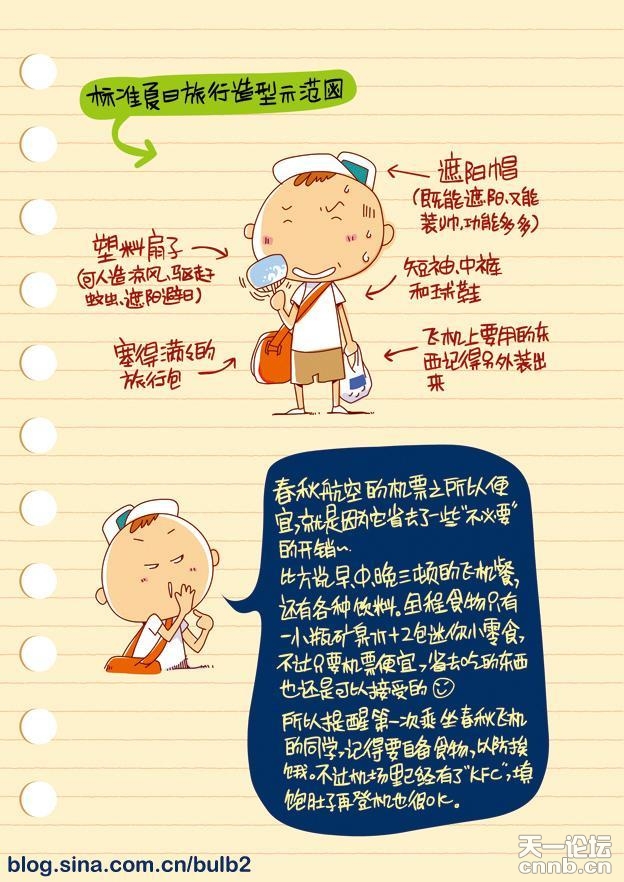 标准夏日旅行造型示范图
遮阳帽
(既能遮阳、又能
装帅,功能多多)
塑料扇子
(可人造凉风、驱赶
蚊虫、遮阳避日)
短袖、中裤
和球鞋
塞得满满的
旅行包
飞机上要用的东
西记得另外装出
来
春秋航空的机票之所以便
宜,就是因为它省去了一些"不必要"
的开销~
比方说早、中、晚三顿的飞机餐,
还有各种饮料。全程食物只有
一小瓶矿泉水+2包迷你小零食,
不过只要机票便宜,省去吃的东西
也还是可以接受的
所以提醒第一次乘坐春秋飞机
的同学,记得要自备食物,以防挨
饿。不过机场里已经有了"KFC",填
饱肚子再登机也很OK。
blog.sina.com.cn/bulb2
天一论坛
cnnb.cn